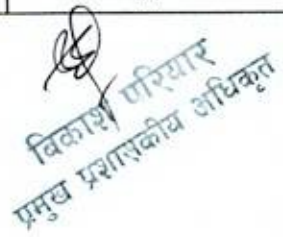 विकाश परियार
प्रमुख प्रशासकीय अधिकृत